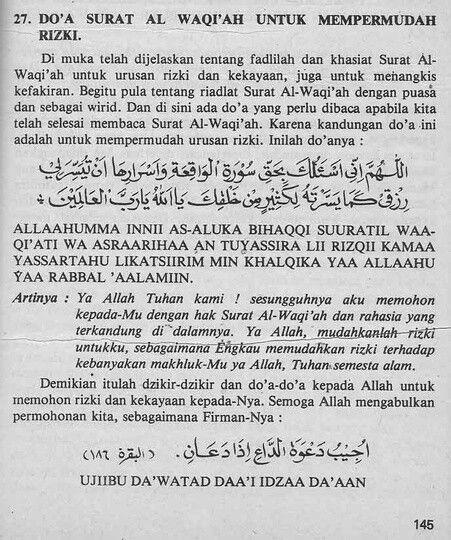 27. DO'A SURAT AL WAQI'AH UNTUK MEMPERMUDAH
RIZKI.
Di muka telah dijelaskan tentang fadlilah dan khasiat Surat Al-
Waqi'ah untuk urusan rizki dan kekayaan, juga untuk menangkis
kefakiran. Begitu pula tentang riadlat Surat Al-Waqi'ah dengan puasa
dan sebagai wirid. Dan di sini ada do'a yang perlu dibaca apabila kita
telah selesai membaca Surat Al-Waqi'ah. Karena kandungan do'a ini
adalah untuk mempermudah urusan rizki. Inilah do'anya :
اَللّٰهُمَّ اِنِّى اَسْئَلُكَ بِحَقِّ سُوْرَةِ الْوَاقِعَةِ وَاَسْرَارِهَا اَنْ تُيَسِّرَلِى
رِزْقِى كَمَا يَسَّرْتَهُ لِكَثِيْرٍ مِنْ خَلْقِكَ يَااَللهُ يَارَبَّ الْعَالَمِيْنَ
ALLAAHUMMA INNII AS-ALUKA BIHAQQI SUURATIL WAA-
QI'ATI WA ASRAARIHAA AN TUYASSIRA LII RIZQII KAMAA
YASSARTAHU LIKATSIIRIM MIN KHALQIKA YAA ALLAAHU
YAA RABBAL 'AALAMIIN.
Artinya : Ya Allah Tuhan kami ! sesungguhnya aku memohon
kepada-Mu dengan hak Surat Al-Waqi'ah dan rahasia yang
terkandung di dalamnya. Ya Allah, mudahkanlah rizki
untukku, sebagaimana Engkau memudahkan rizki terhadap
kebanyakan makhluk-Mu ya Allah, Tuhan semesta alam.
Demikian itulah dzikir-dzikir dan do'a-do'a kepada Allah untuk
memohon rizki dan kekayaan kepada-Nya. Semoga Allah mengabulkan
permohonan kita, sebagaimana Firman-Nya :
اُجِيْبُ دَعْوَةَ الدَّاعِ اِذَا دَعَانِ. (البقرة ١٨٦)
UJIIBU DA'WATAD DAA'I IDZAA DA'AAN
145